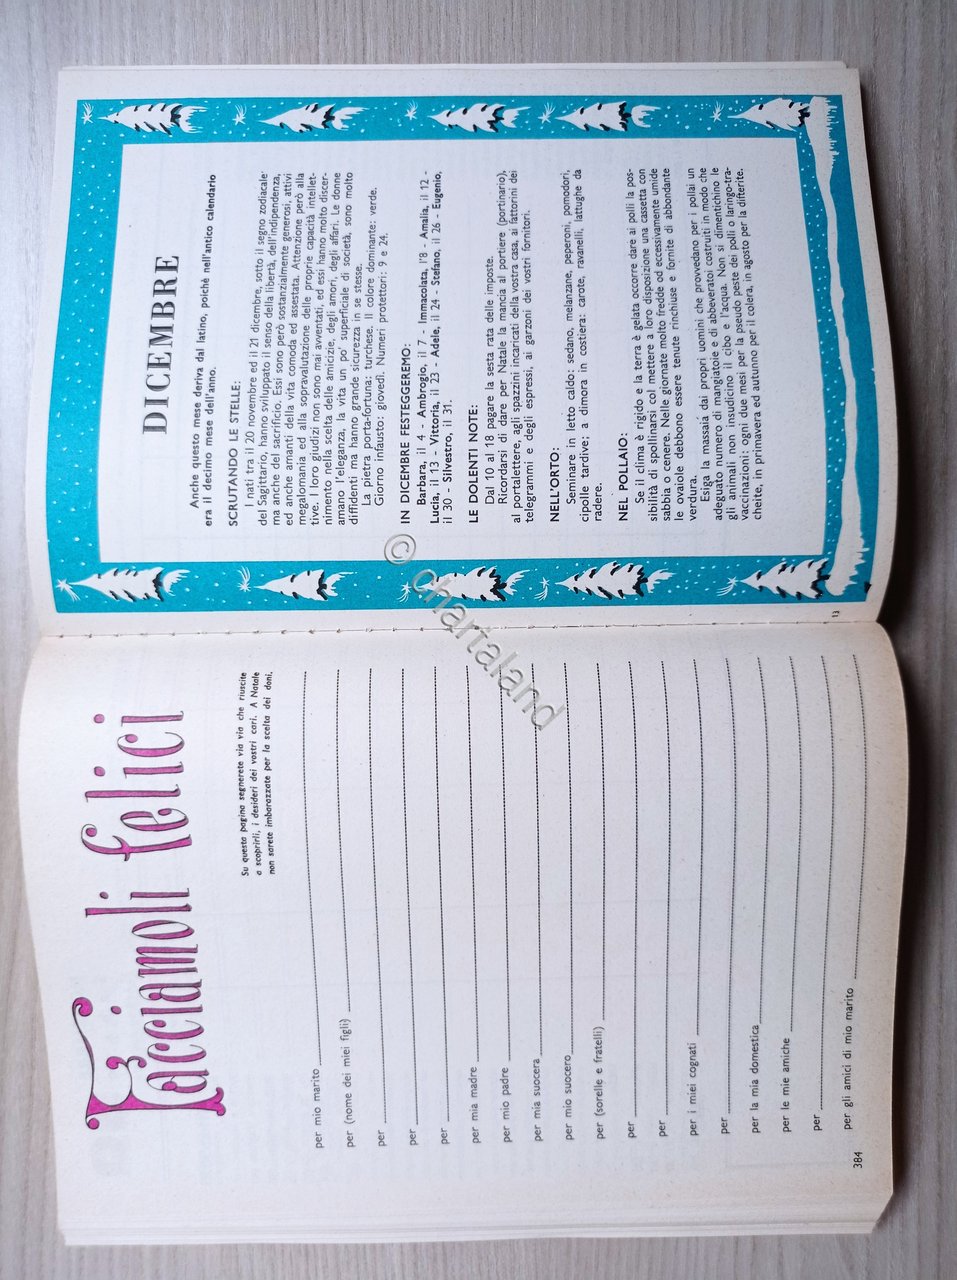 Facciamoli felici
Su questa pagina segnerete via via che riuscite
a scoprirli, i desideri dei vostri cari. A Natale
non sarete imbarazzate per la scelta dei doni.
per mio marito
per (nome dei miei figli)
per
per
per
per mia madre
per mio padre
per mia suocera
per mio suocero
per (sorelle e fratelli)
per
per
per i miei cognati
per
per la mia domestica
per le mie amiche
per
per gli amici di mio marito
384
DICEMBRE
Anche questo mese deriva dal latino, poichè nell'antico calendario
era il decimo mese dell'anno.
SCRUTANDO LE STELLE:
I nati tra il 20 novembre ed il 21 dicembre, sotto il segno zodiacale
del Sagittario, hanno sviluppato il senso della libertà, dell'indipendenza,
ma anche del sacrificio. Essi sono però sostanzialmente generosi, attivi
ed anche amanti della vita comoda ed assestata. Attenzione però alla
megalomania ed alla sopravalutazione delle proprie capacità intellet-
tive. I loro giudizi non sono mai avventati, ed essi hanno molto discer-
nimento nella scelta delle amicizie, degli amori, degli affari. Le donne
amano l'eleganza, la vita un po' superficiale di società, sono molto
diffidenti ma hanno grande sicurezza in se stesse.
La pietra porta-fortuna: turchese. Il colore dominante: verde.
Giorno infausto: giovedì. Numeri protettori: 9 e 24.
IN DICEMBRE FESTEGGEREMO:
Barbara, il 4 - Ambrogio, il 7 - Immacolata, l'8 - Amalia, il 12 -
Lucia, il 13 - Vittoria, il 23 - Adele, il 24 - Stefano, il 26 - Eugenio,
il 30 - Silvestro, il 31.
LE DOLENTI NOTE:
Dal 10 al 18 pagare la sesta rata delle imposte.
Ricordarsi di dare per Natale la mancia al portiere (portinario),
al portalettere, agli spazzini incaricati della vostra casa, ai fattorini dei
telegrami e degli espressi, ai garzoni dei vostri fornitori.
NELL'ORTO:
Seminare in letto caldo: sedano, melanzane, peperoni, pomodori,
cipolle tardive; a dimora in costiera: carote, ravanelli, lattughe da
radere.
NEL POLLAIO:
Se il clima è rigido e la terra è gelata occorre dare ai polli la pos-
sibilità di spollinarsi col mettere a loro disposizione una cassetta con
sabbia o cenere. Nelle giornate molto fredde od eccessivamente umide
le ovaiole debbono essere tenute rinchiuse e fornite di abbondante
verdura.
Esiga la massaia dai propri uomini che provvedano per i pollai un
adeguato numero di mangiatoie e di abbeveratoi costruiti in modo che
gli animali non insudicino il cibo e l'acqua. Non si dimentichino le
vaccinazioni: ogni due mesi per la pseudo peste dei polli o laringo-tra-
cheite, in primavera ed autunno per il colera, in agosto per la difterite.
13
© chartaland